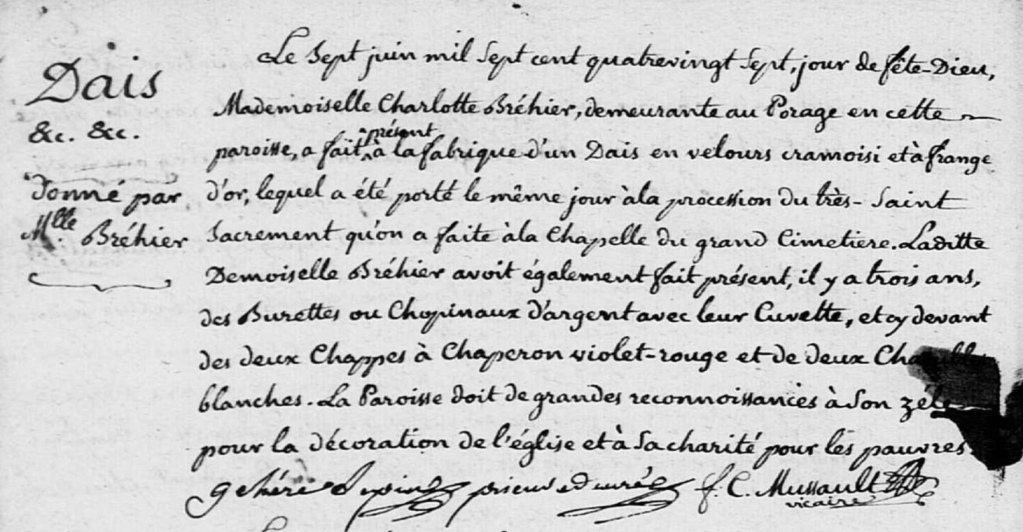 Dais
&c. &c.
donné par
Mlle. Bréhier
Le Sept juin mil Sept cent quatrevingt Sept, jour de fête-Dieu,
Mademoiselle Charlotte Bréhier, demeurante au Porage en cette
paroisse, a fait présent à la fabrique d'un Dais en velours cramoisi et à frange
d'or, lequel a été porté le même jour à la procession du très-Saint
Sacrement qu'on a faite à la Chapelle du grand Cimetiere. Laditte
Demoiselle Bréhier avoit également fait présent, il y a trois ans,
des Burettes ou Chopinaux d'argent avec leur Cuvette, et cy devant
des deux Chappes à Chaperon violet-rouge et de deux
blanches. La Paroisse doit de grandes reconnoissances à Son zèle
pour la décoration de l'église et à Sa charité pour les pauvres.
prieur curé f. C. Mussault
vicaire